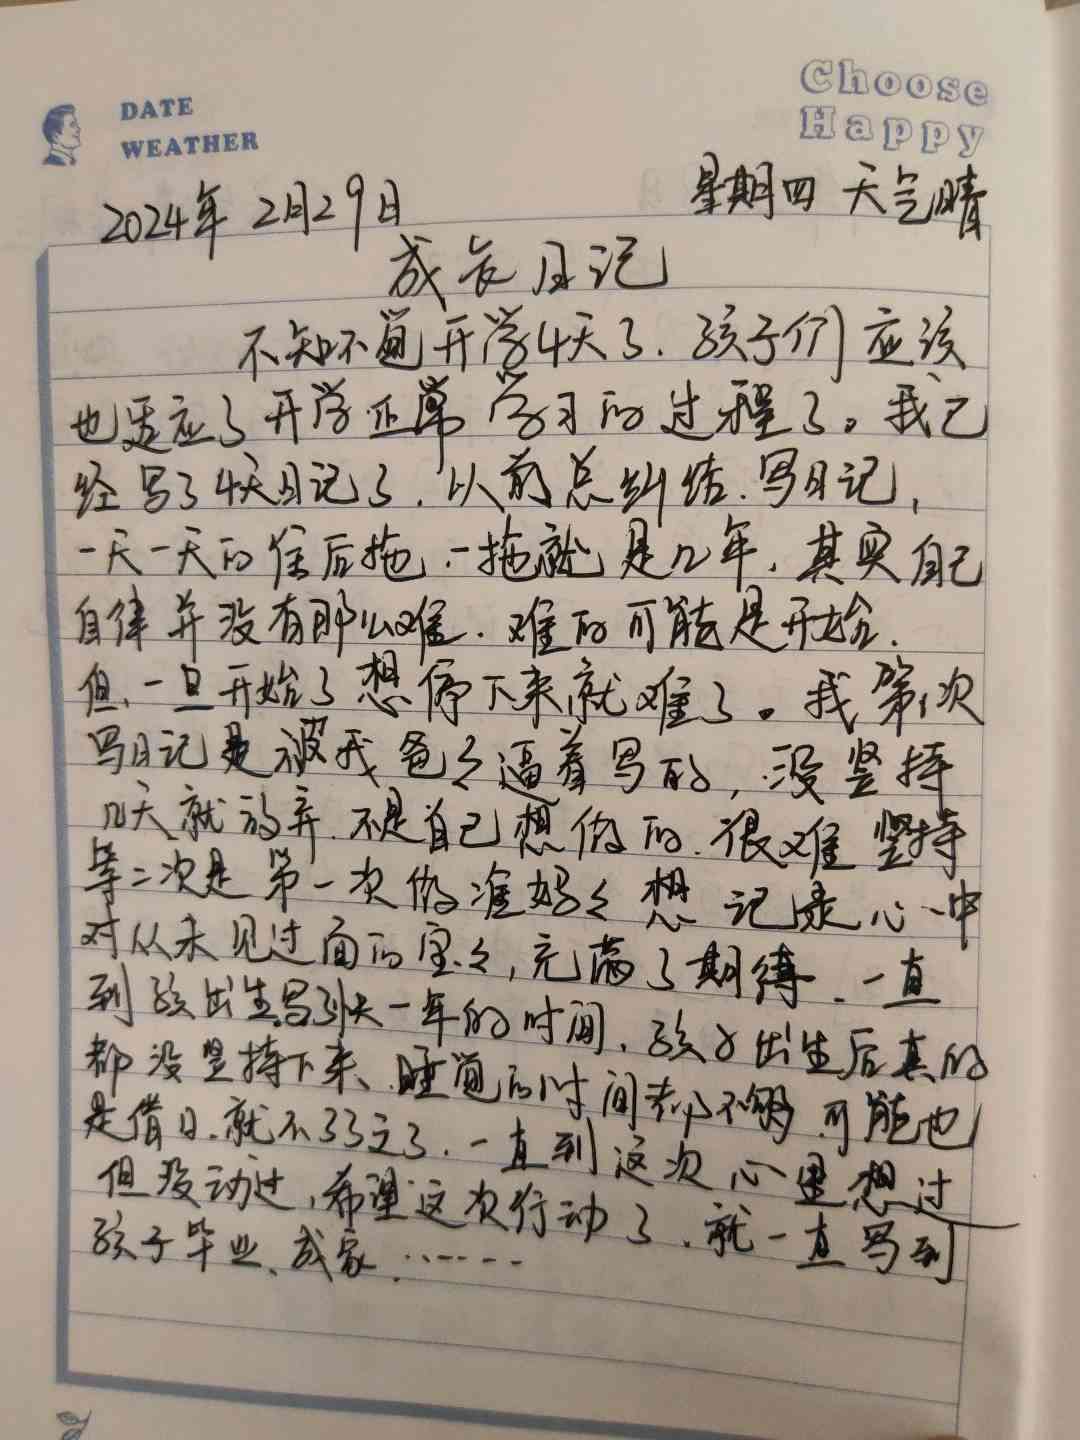 Choose
Happy
DATE
WEATHER
2024年 2月29日 星期四 天气晴
成长日记
不知不觉开学4天了.孩子们应该
也适应了开学正常学习的过程了。我已
经写了4天日记了.以前总纠结.写日记,
一天一天的往后拖.一拖就是几年.其实自己
自律并没有那么难.难的可能是开始.
但.一旦开始了想停下来就难了。我第1次
写日记是被我爸々逼着写的,没坚持
几天就放弃.不是自己想做的.很难坚持
第二次是第一次做准妈々想记录心中
对从未见过面的宝々,充满了期待.一直
到孩出生.写到大一年的时间.孩子出生后真的
都没坚持下来、睡觉的时间都不够.可能也
是借口.就不了了之了.一直到这次心里想过
但没动过,希望这次行动了.就一直写到
孩子毕业、成家.……